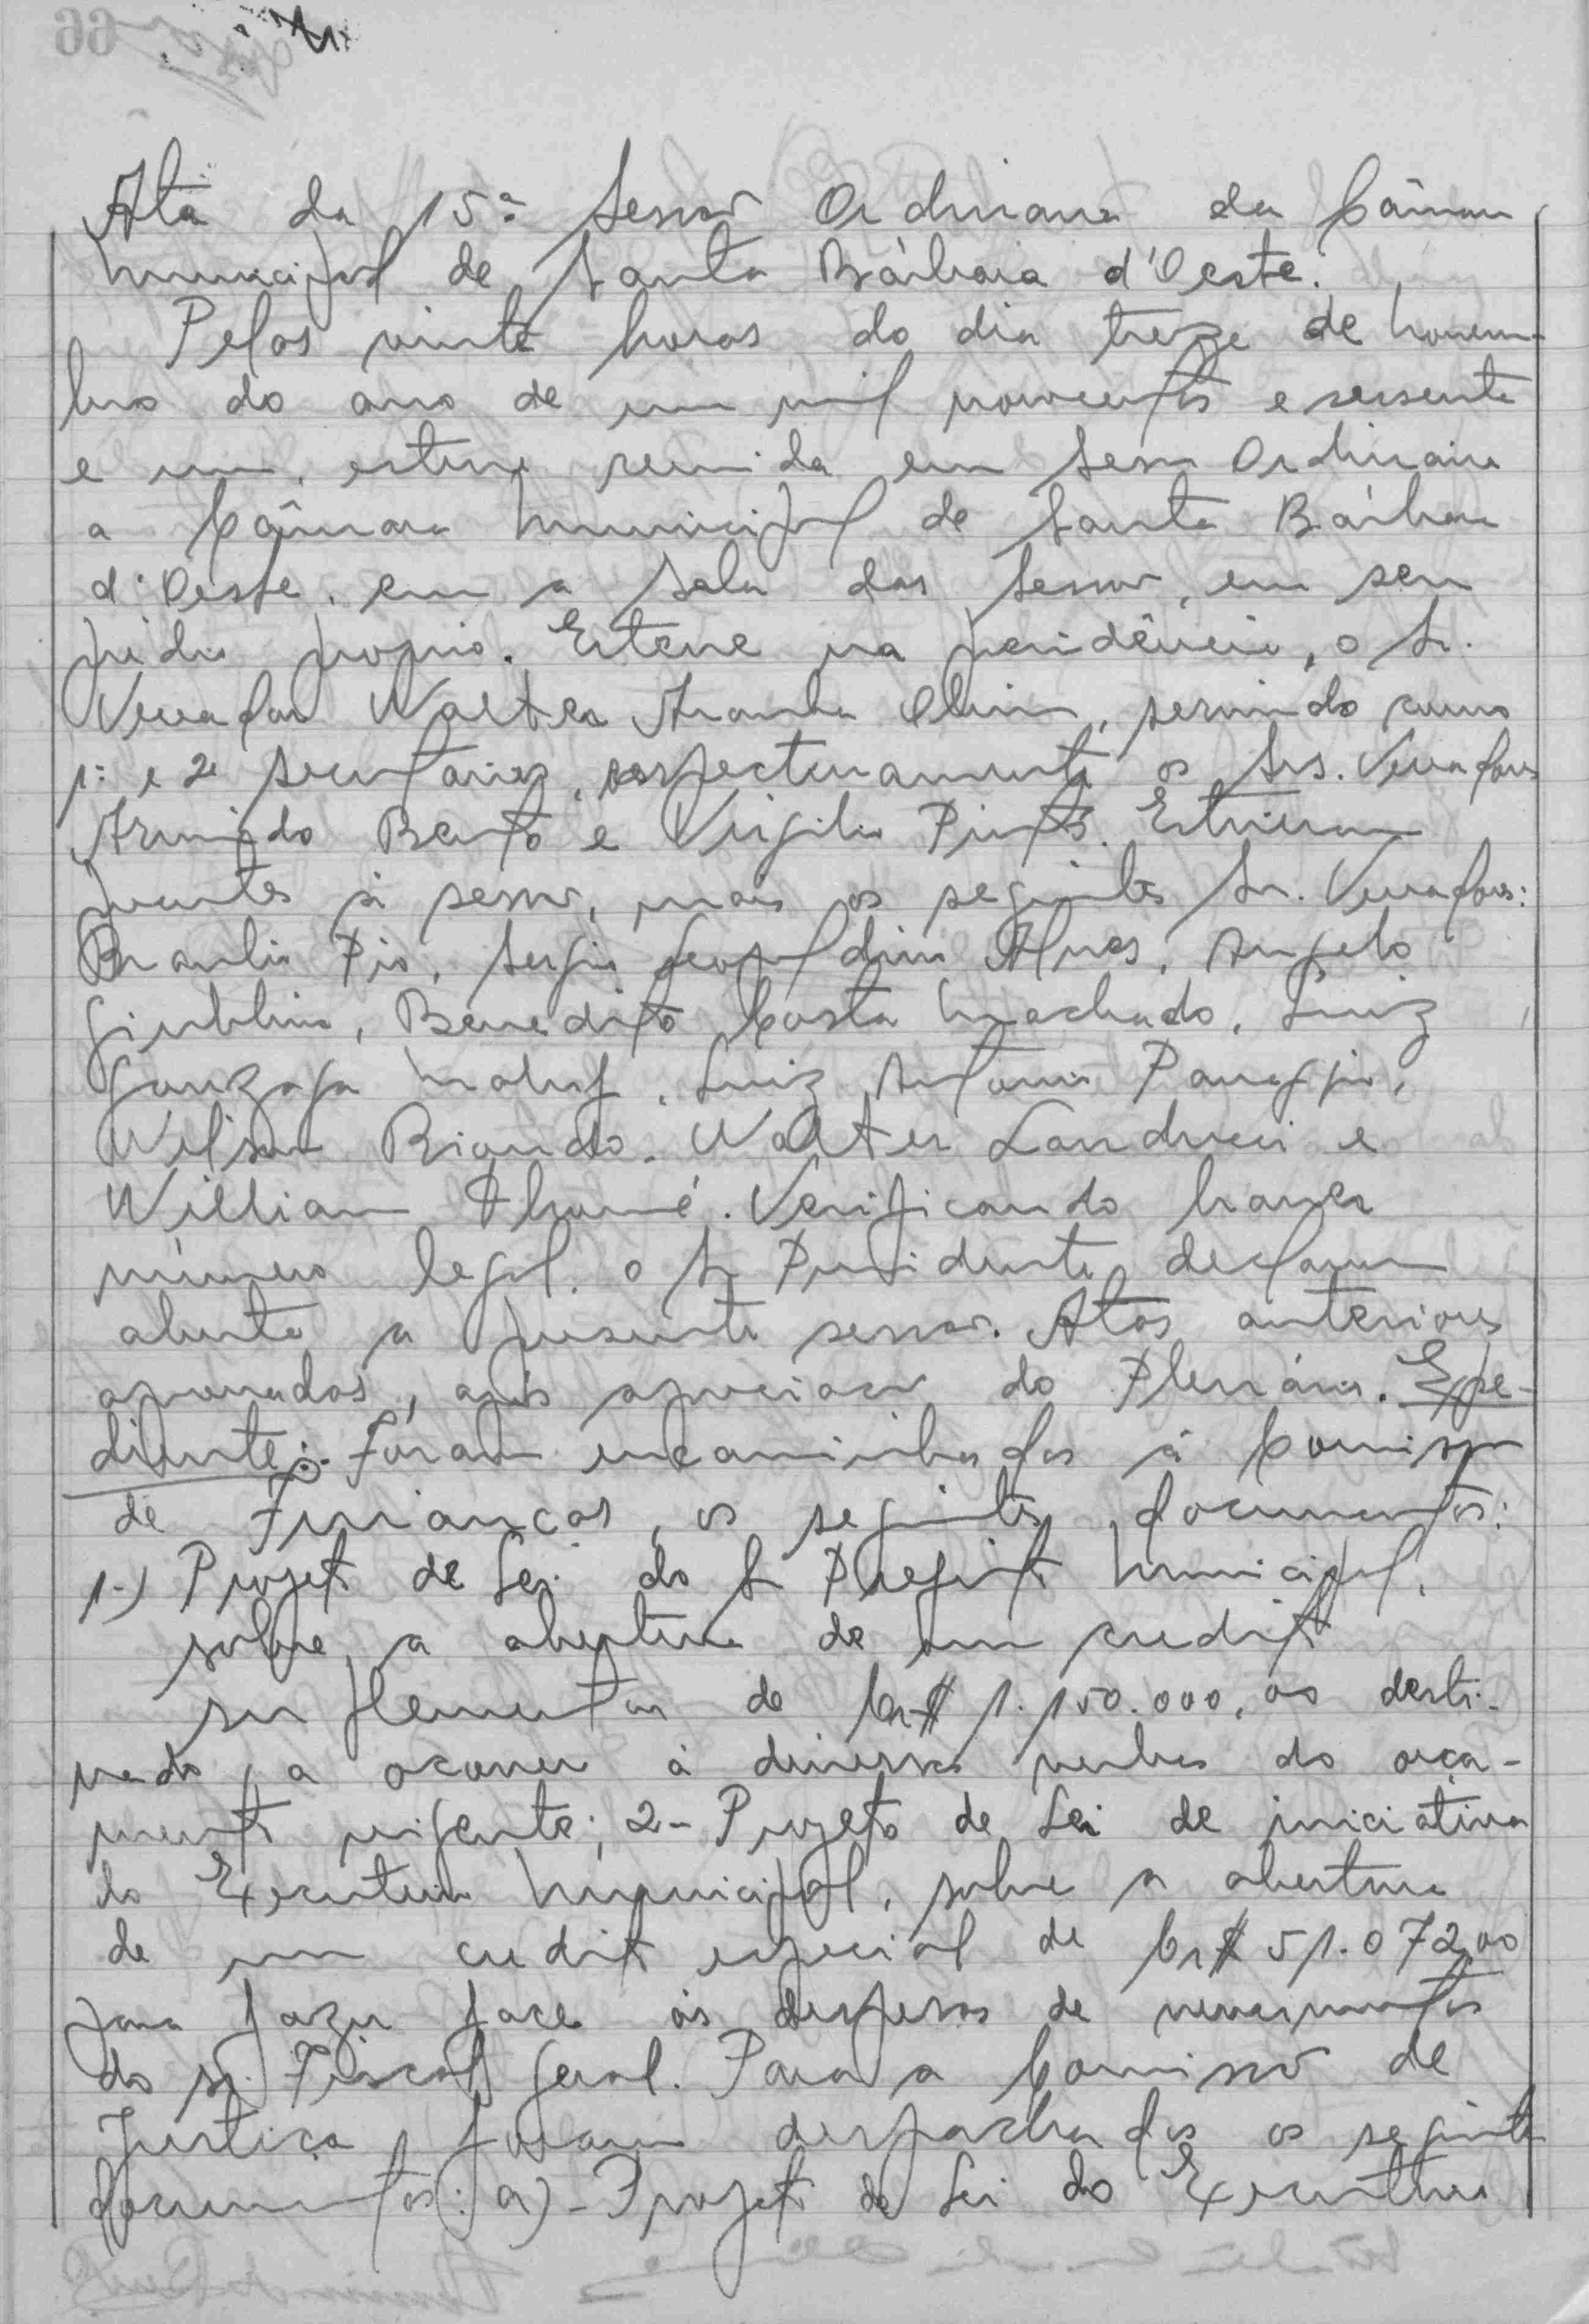 Ata da 15ª Sessão Ordinaria da Câmara
Municipal de Santa Bárbara d'Oeste.
Pelas vinte horas do dia treze de novem-
bro do ano de um mil novecentos e sessenta
e um, esteve reunida em Sessão Ordinaria
a Câmara Municipal de Santa Bárbara
d'Oeste, em a Sala das Sessões, em seu
prédio proprio. Esteve na presidência, o Sr.
Vereador Walter Aranha Olivin, servindo como
1º e 2º secretários, respectivamente os Srs. Vereadores
Armindo Bento e Virgilio Pinto. Estiveram
presentes á sessão, mais os seguintes Srs. Vereadores:
Braulio Pio, Sergio Leopoldino Alves, Angelo
Giubbina, Benedito Costa Machado, Luiz
Gonzaga Maluf, Luiz Antonio Panaggio,
Wilson Biondo, Walter Landucci e
William Thomé. Verificando haver
número legal, o Sr Presidente declarou
aberta a presente sessão. Atas anteriores
aprovadas, após apreciação do Plenário. Expe-
diente:- Foram encaminhados á Comissão
de Finanças, os seguintes documentos:
1-) Projeto de Lei do Sr Prefeito Municipal,
sobre a abertura de um credito
suplementar de Cr$ 1.150.000,00 desti-
nado a ocorrer á diversas verbas do orça-
mento vigente; 2- Projeto de Lei de iniciativa
do Executivo Municipal, sobre a abertura
de um credito especial de Cr$ 51.072,00
para fazer face ás despesas de vencimentos
do sr. Fiscal Geral. Para a Comissão de
Justiça foram despachados os seguintes
documentos: a)- Projeto de Lei do Executivo